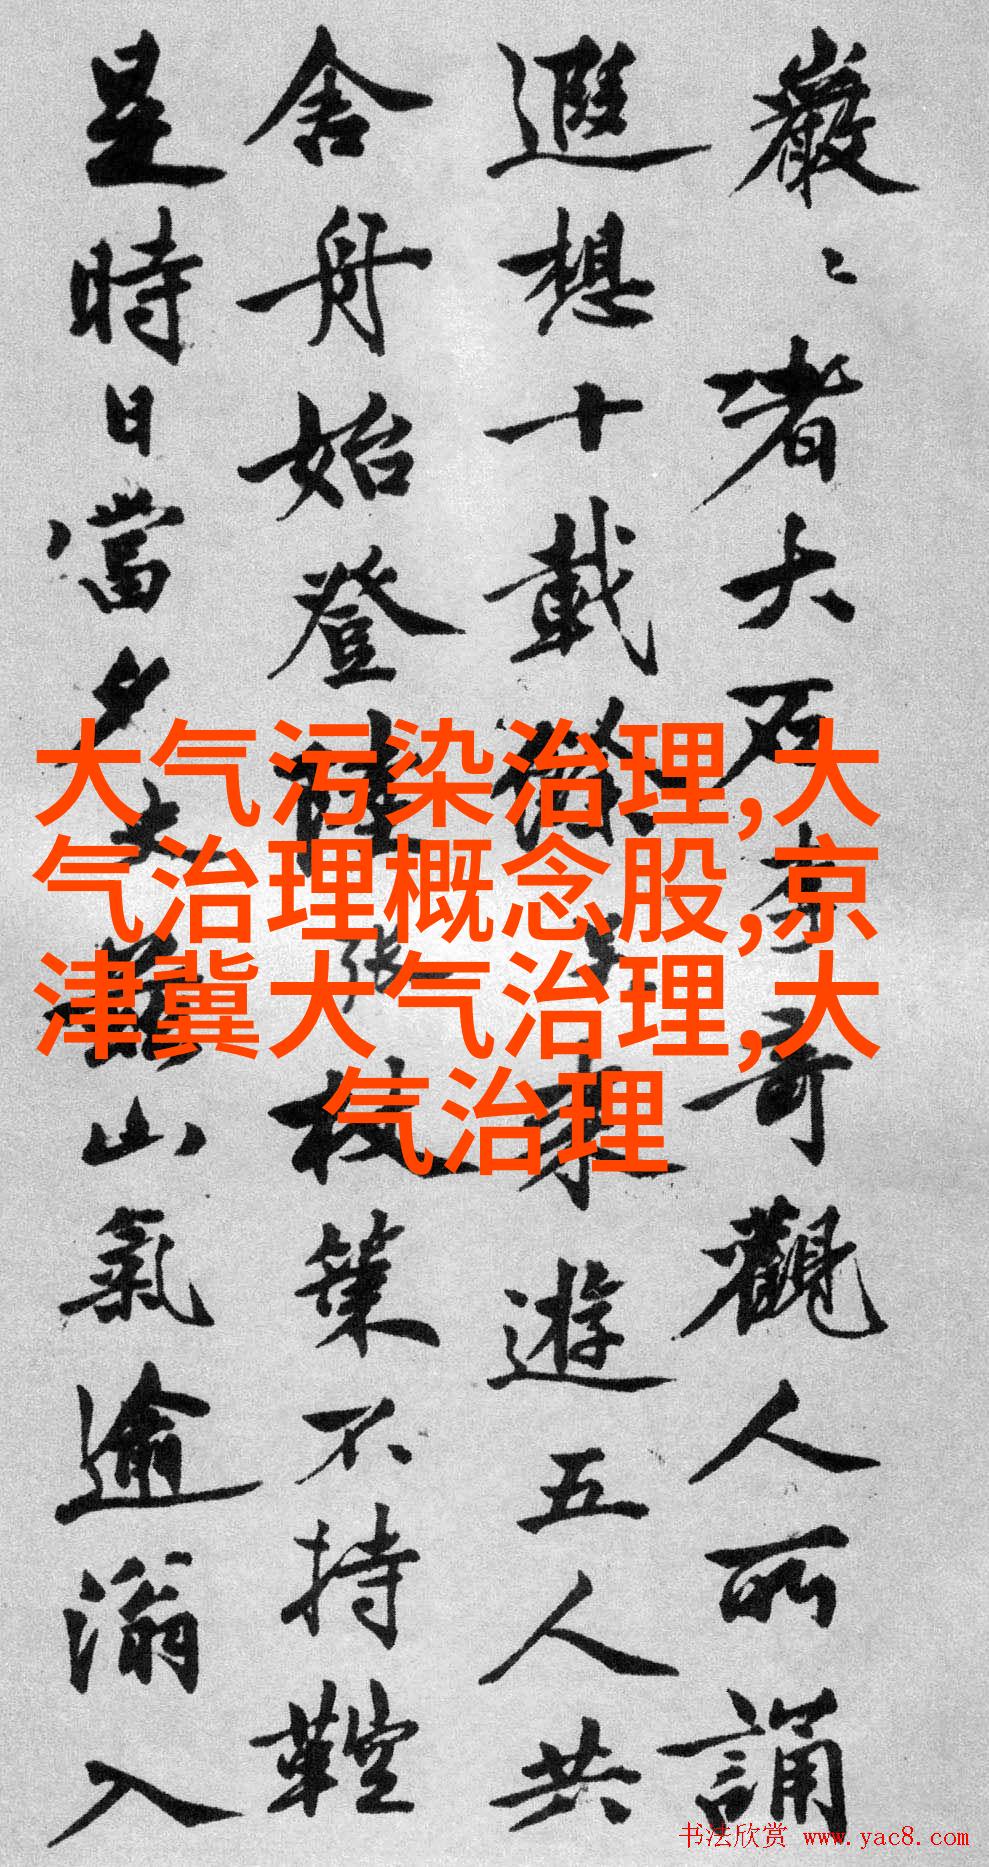 巖〻者大石奇哥觀人所誦
遐想十載來遊五人共
舍舟始登陸張杖策不持鞚
是時日當夕山氣逾滃入
大气污染治理,大
气治理概念股,京
津冀大气治理,大
气治理
书法欣赏 www.yac8.com